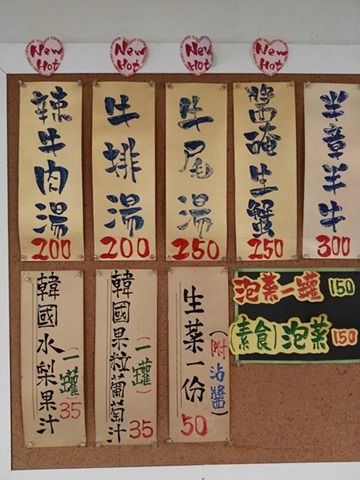 New Hot
New Hot
New Hot
New Hot
辣牛肉湯
200
牛排湯
200
牛尾湯
250
醬醃生蟹
250
半章半牛
300
韓國水梨果汁
(一罐)
35
韓國果粒葡萄汁
(一罐)
35
生菜一份
(附沾醬)
50
泡菜一罐 150
(素食)泡菜 150